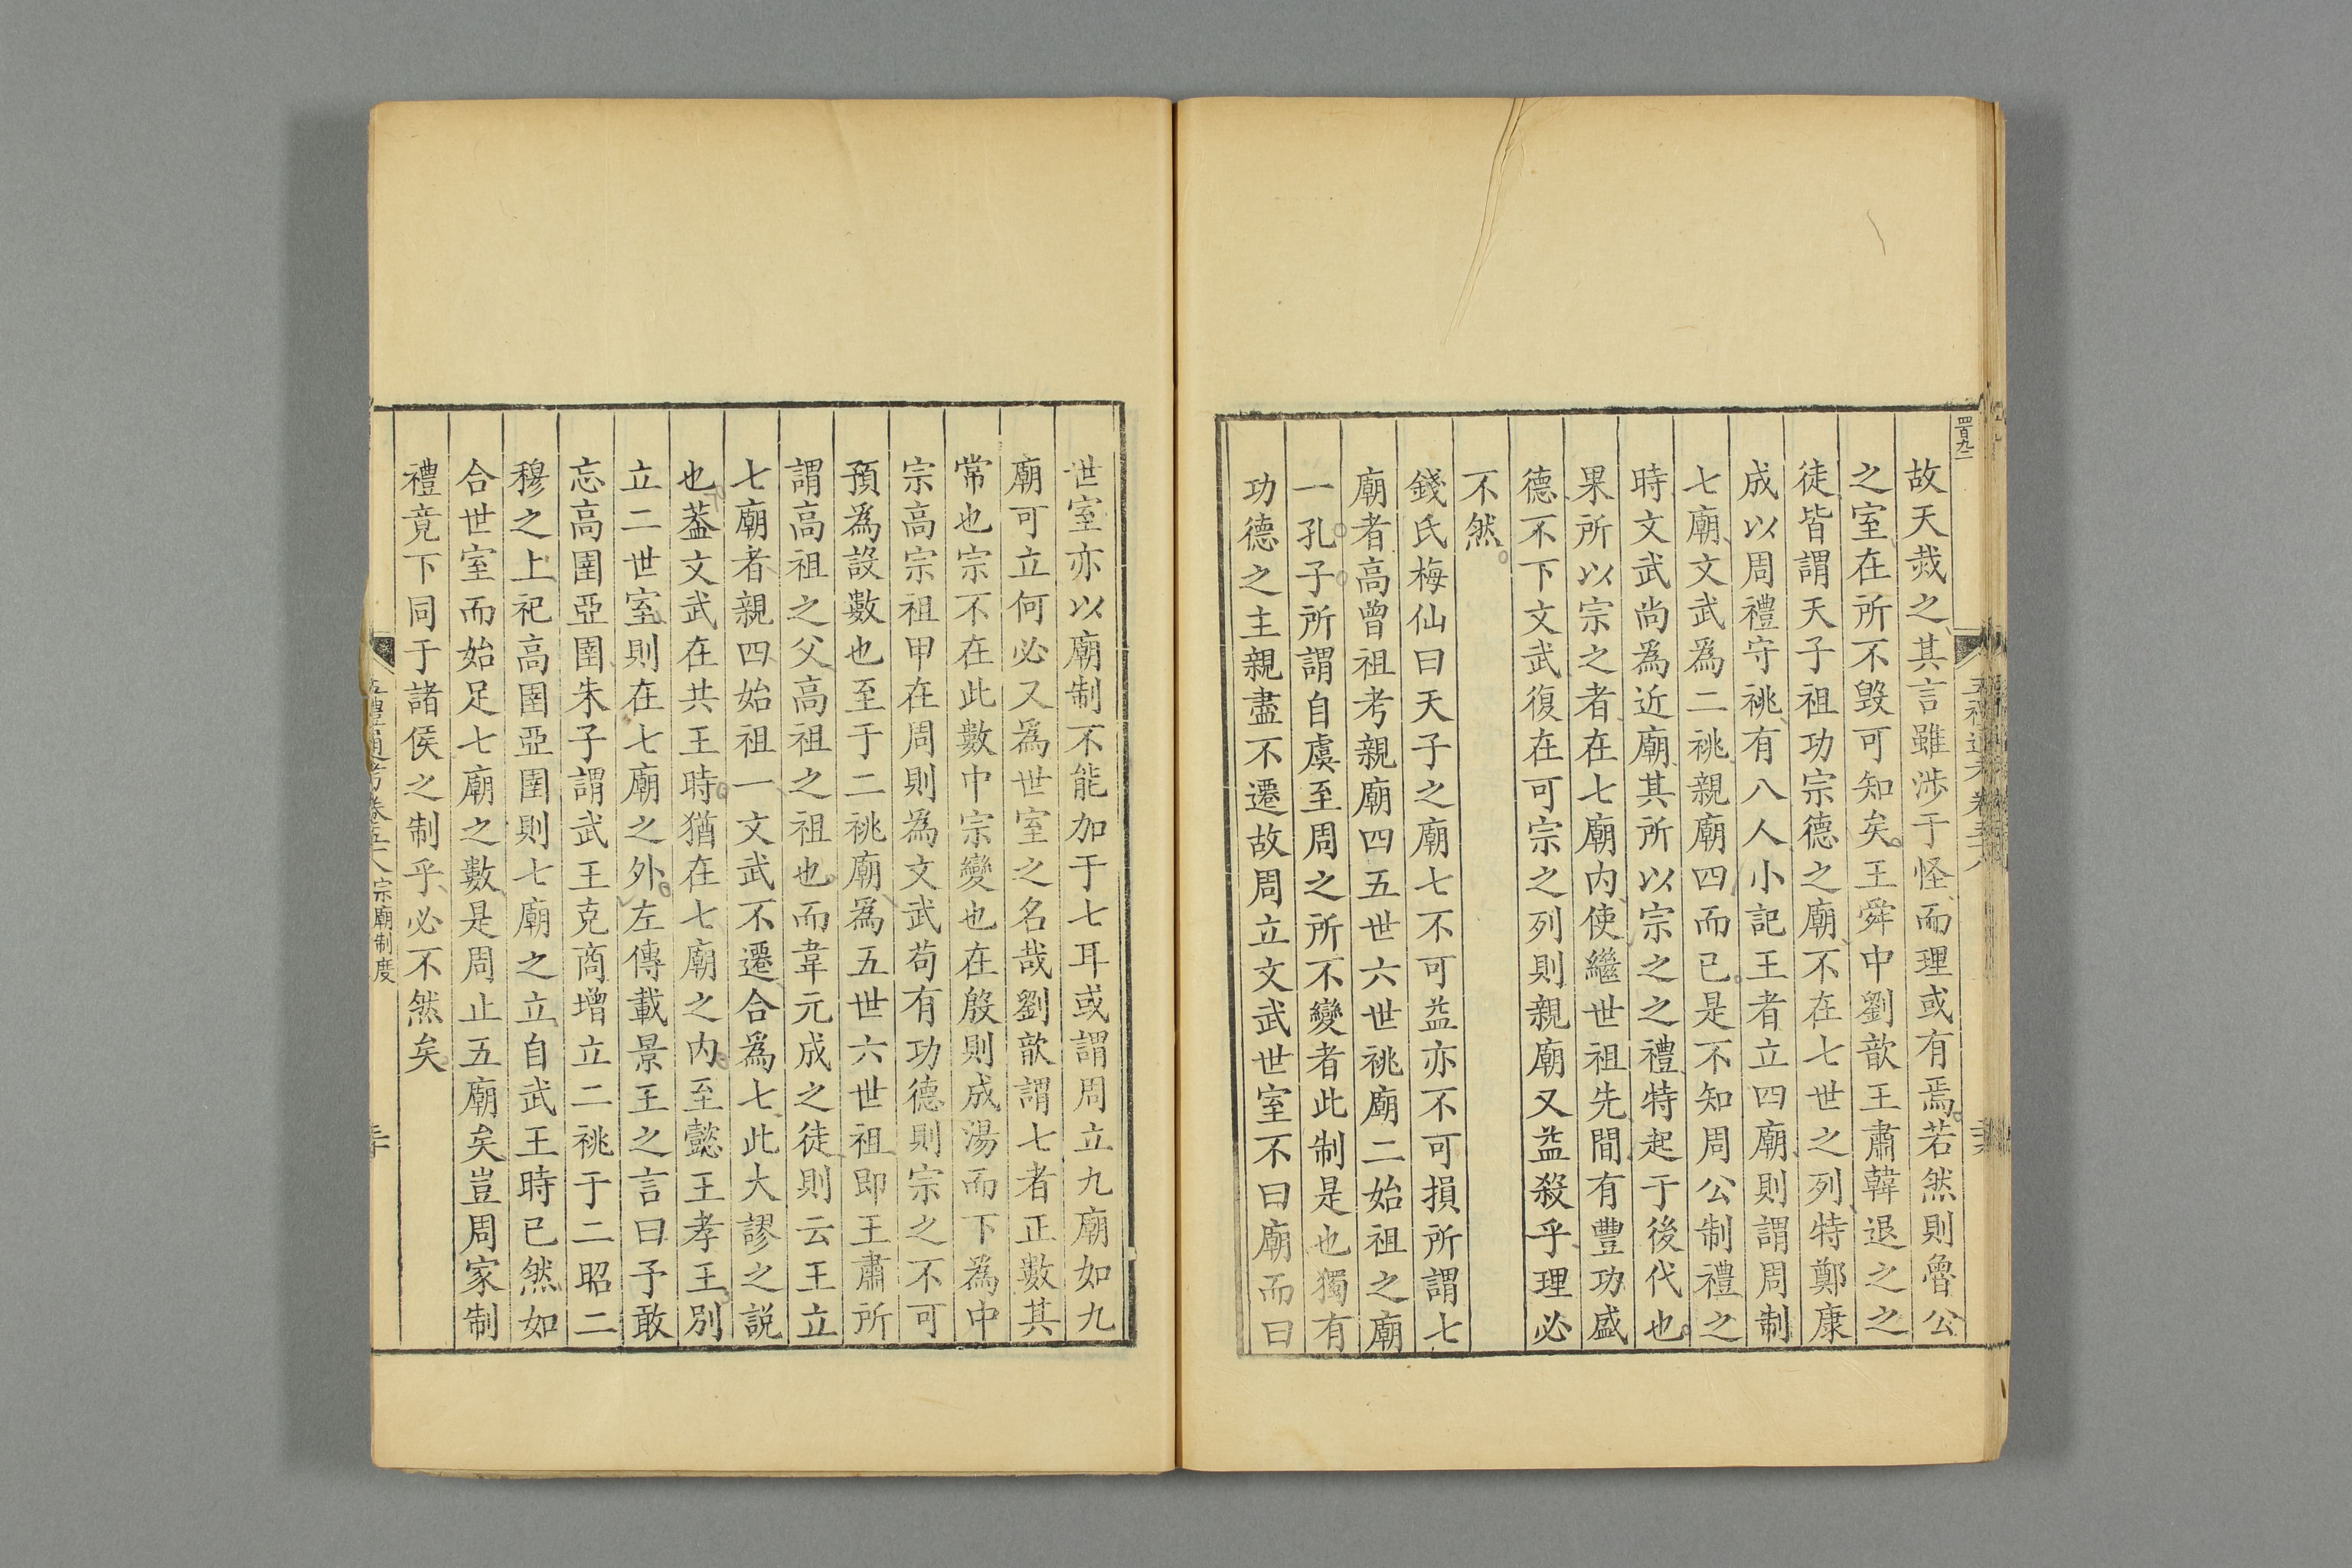 四百九二
故天烖之其言雖涉于怪而理或有焉若然則魯公
之室在所不毁可知矣王舜中劉歆王肅韓退之之
徒皆謂天子祖功宗德之廟不在七世之列特鄭康
成以周禮守祧有八人小記王者立四廟則謂周制
七廟文武爲二祧親廟四而已是不知周公制禮之
時文武尚爲近廟其所以宗之之禮特起于後代也
果所以宗之者在七廟内使繼世祖先間有豐功盛
德不下文武復在可宗之列則親廟又益殺乎理必
不然
錢氏梅仙曰天子之廟七不可益亦不可損所謂七
廟者高曾祖考親廟四五世六世祧廟二始祖之廟
一孔子所謂自虞至周之所不變者此制是也獨有
功德之主親盡不遷故周立文武世室不曰廟而曰
世室亦以廟制不能加于七耳或謂周立九廟如九
廟可立何必又爲世室之名哉劉歆謂七者正數其
常也宗不在此數中宗變也在殷則成湯而下爲中
宗高宗祖甲在周則爲文武苟有功德則宗之不可
預爲設數也至于二祧廟爲五世六世祖即王肅所
謂高祖之父高祖之祖也而韋元成之徒則云王立
七廟者親四始祖一文武不遷合爲七此大謬之説
也葢文武在共王時猶在七廟之内至懿王孝王別
立二世室則在七廟之外左傳載景王之言曰予敢
忘高圉亞圉朱子謂武王克商增立二祧于二昭二
穆之上祀高圉亞圉則七廟之立自武王時已然如
合世室而始足七廟之數是周止五廟矣豈周家制
禮竟下同于諸侯之制乎必不然矣
五禮通考卷五八 宗廟制度